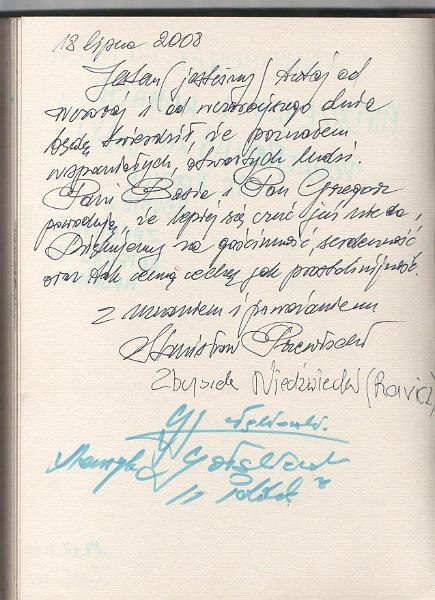 18 lipca 2003
Jestem (jesteśmy) tutaj od
wczoraj i od wczorajszego dnia
będę twierdził, że poznałem
wspaniałych, otwartych ludzi.
Pani Basia i Pan Grzegorz
powodują, że lepiej się czuć już nie da,
Dziękujemy za gościnność, serdeczność
oraz tak cenną cechę jak prostolinijność.
Z uznaniem i poważaniem
Stanisław
Zbyszek Niedźwiecki (Rawicz)
Henryk